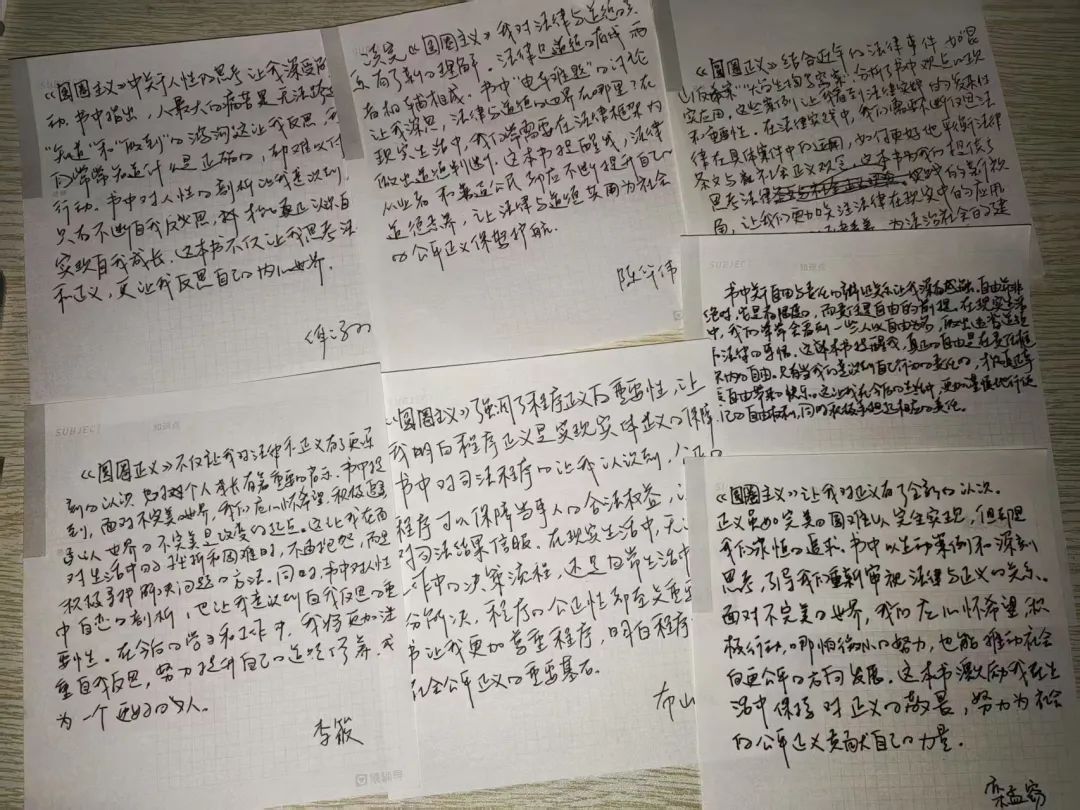 《圆圈主义》中关于人性的思考让我深受感
动.书中指出,人最大的痛苦是无法跨越
"知道"和"做到"的鸿沟.这让我反思,我
们常常知道什么是正确的,却难以付
行动.书中对人性的剖析让我意识到,
只有不断自我反思,才能真正认识自
实现自我成长.这本书不仅让我思考法
和正义,更让我反思自己的内心世界.
读完《圆圈主义》我对法律与道德的关
系有了新的理解.法律是道德的底线 两
者相辅相成.书中"电车难题"的讨论
让我深思,法律与道德的边界在哪里?在
现实生活中,我们常需要在法律框架内
做出道德判断.这本书提醒我,法律
从业者和普通公民都应不断提升自己的
道德素养,让法律与道德共同为社会
的公平正义保驾护航.
《圆圈正义》结合近年的法律事件 如"昆
山反杀案""大学生掏鸟窝案",分析了书中观点的现
实应用.这些案例让我看到法律实践中的复杂性
和重要性.在法律实践中,我们需要不断反思法
律在具体案件中的适用,如何更好地平衡法律
条文与社会正义观念.这本书为我们提供了
思考法律
局,让我们更加关注法律在现实中的应用
为法治社会的建
SUBJECT 知识点
书中关于自由与责任的辩证关系让我深有感触.自由并非
绝对,它是有限度的,而责任是自由的前提.在现实生活
中,我们常常会看到一些人以自由为名,做出违背道德
和法律的事情.这本书提醒我,真正的自由是在责任框
架内的自由.只有当我们意识到自己行为的责任时,才能真正享
受自由带来的快乐.这让我在今后的生活中,更加谨慎地行使
自己的自由权利,同时积极承担起相应的责任.
SUBJECT 知识点
《圆圈正义》不仅让我对法律和正义有了更深
刻的认识 也对个人成长有着重要的启示.书中提
到,面对不完美的世界,我们应心怀希望,积极追寻
承认世界的不完美是改变的起点.这让我在面
对生活中的挫折和困难时,不再抱怨,而是
积极寻找解决问题的方法.同时,书中对人性
中自恋的剖析,也让我意识到自我反思的重
要性.在今后的学习和工作中,我将更加注
重自我反思,努力提升自己的道德修养,成
为一个更好的人.
李筱
《圆圈主义》强调了程序正义的重要性,让
我明白程序正义是实现实体正义的保障
书中对司法程序的让我认识到,公正的
程序可以保障当事人的合法权益,让
对司法结果信服.在现实生活中,无论
作中的决策流程,还是日常生活中
分解决,程序的公正性都至关重要
书让我更加尊重程序,明白程序
社会公平正义的重要基石.
《圆圈主义》让我对正义有了全新的认识.
正义虽如完美的圆难以完全实现,但却是
我们永恒的追求.书中以生动案例和深刻
思考,引导我们重新审视法律与正义的关系.
面对不完美的世界,我们应心怀希望 积
极行动,即怕微小的努力,也能推动社会
向更公平的方向发展.这本书激励我在生
活中保持对正义的敬畏,努力为社会
的公平正义贡献自己的力量.